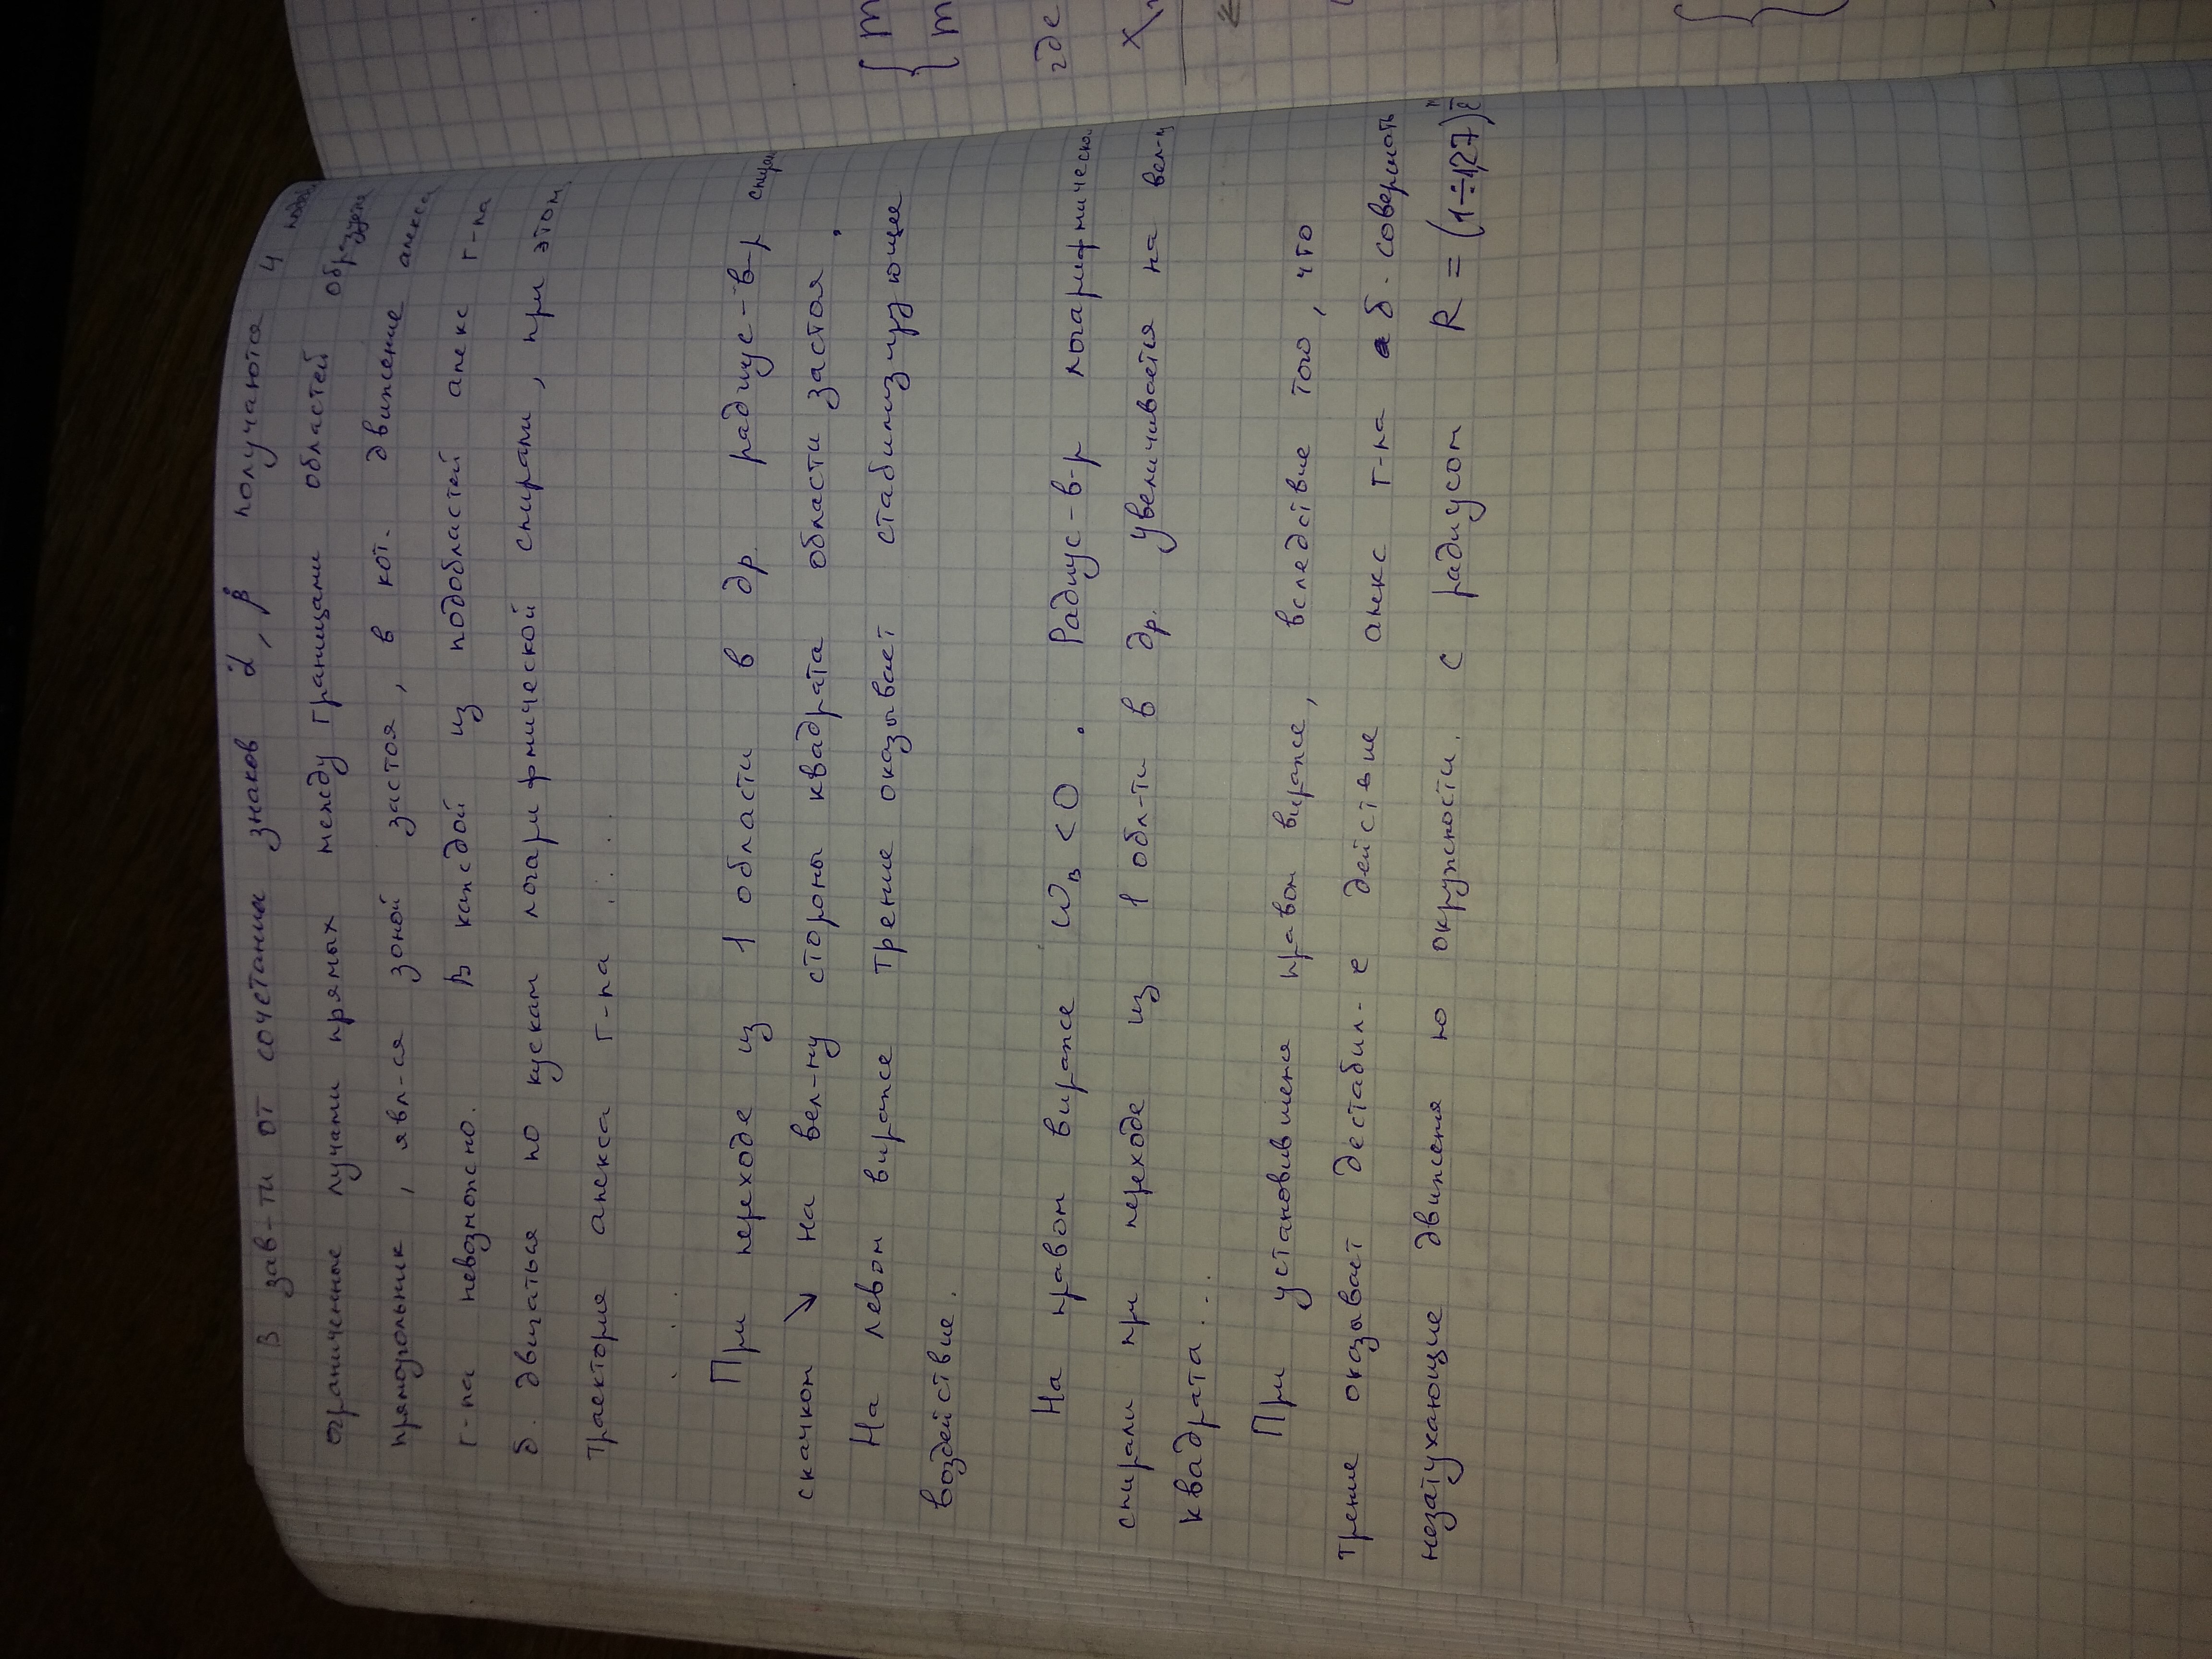 В зав-ти от сочетания знаков α̇, β̇ получаются 4
ограниченные лучами прямых между границами областей образуется
прямоугольник, явл-ся зоной застоя, в кот. движение апекса
г-па невозможно. В каждой из подобластей апекс г-па
б. двигаться по кускам логарифмической спирали, при этом
траектория апекса г-па . . . .
. . .
При переходе из 1 области в др радиус-в-р
скачком ↘ на вел-ну стороны квадрата области застоя.
На левом вираже трение оказывает стабилизирующее
воздействие.
На правом вираже ωв < 0. Радиус-в-р логарифмическо
спирали при переходе из 1 обл-ти в др. увеличивается на вел-у
квадрата . . .
При установившемся правом вираже, вследствие того, что
трение оказывает дестабил-е действие апекс г-па б. совершать
незатухающие движения по окружности с радиусом R = (1÷1,27)
{ m
{ m
где